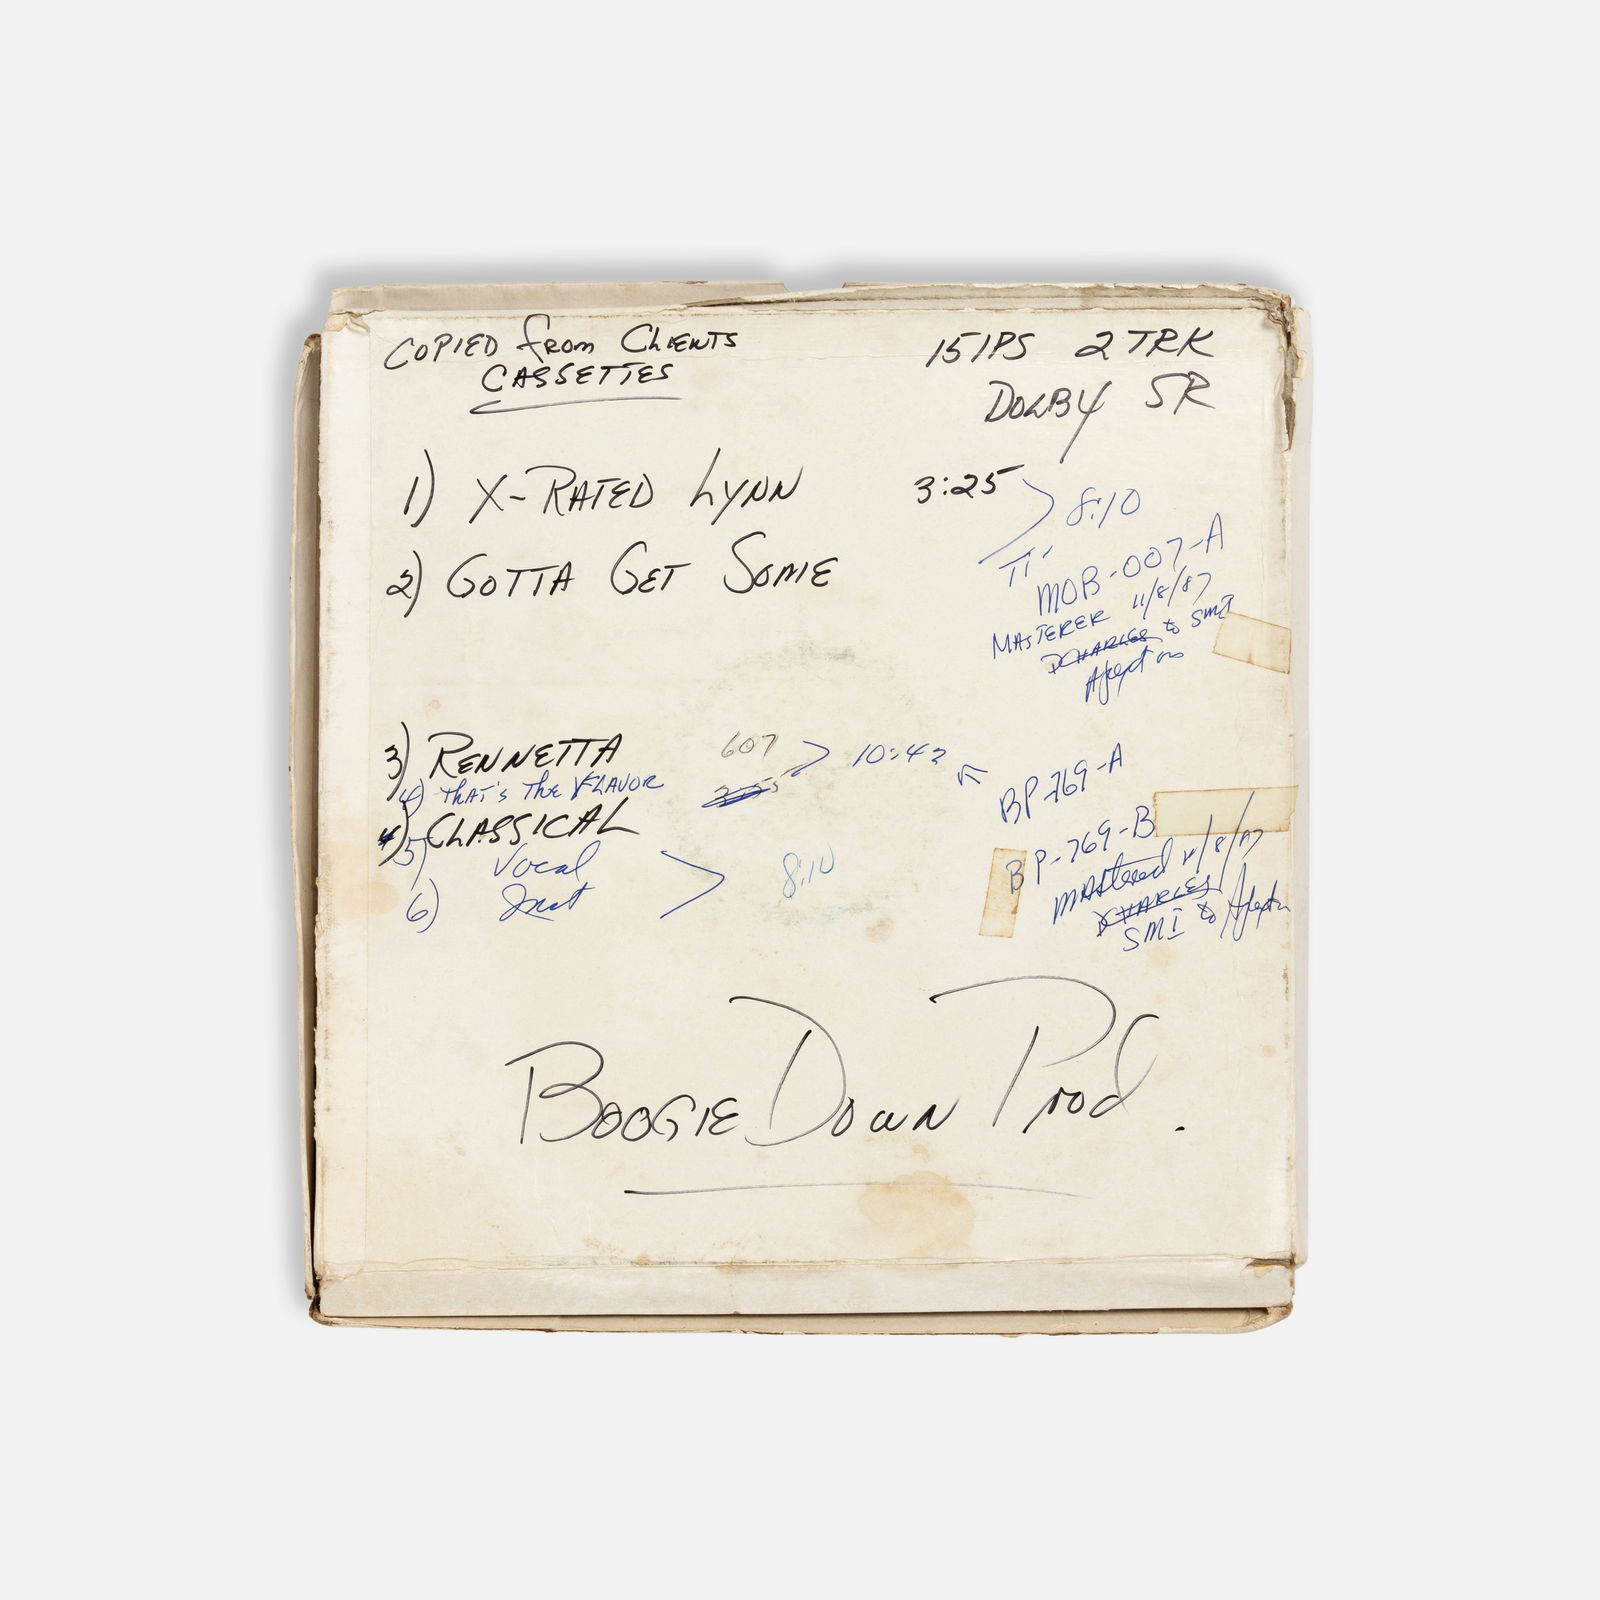 COPIED from CLIENTS
CASSETTES
15 IPS 2 TRK
DOLBY SR
1) X-RATED LYNN 3:25
8:10
2) GOTTA GET SOME
MOB-007-A
MASTERER 11/8/87
to SMI
3) RENNETTA 607 10:42
4) THAT'S THE FLAVOR
BP-769-A
4) 5) CLASSICAL
BP-769-B
Vocal 8:10
mastered
6) Inst
CHARLES
SMI to
BOOGIE DOWN Prod.